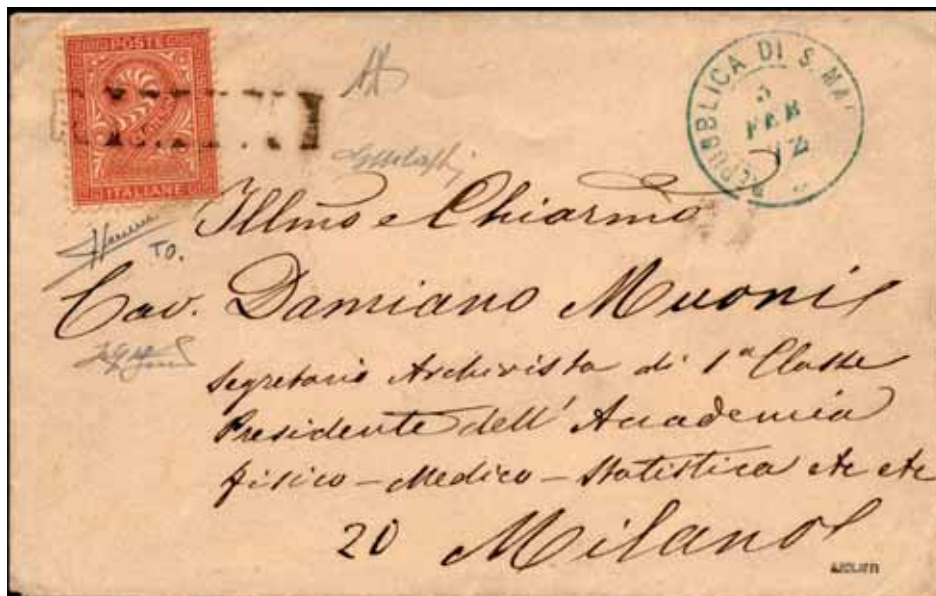 POSTE
2
ITALIANE
REPUBBLICA DI S. MA
5
FEB
72
Illmo e Chiarmo
TO.
Cav. Damiano Muoni
Segretario Archivista di 1a Classe
Presidente dell' Accademia
fisico - Medico - Statistica etc etc
20 Milano